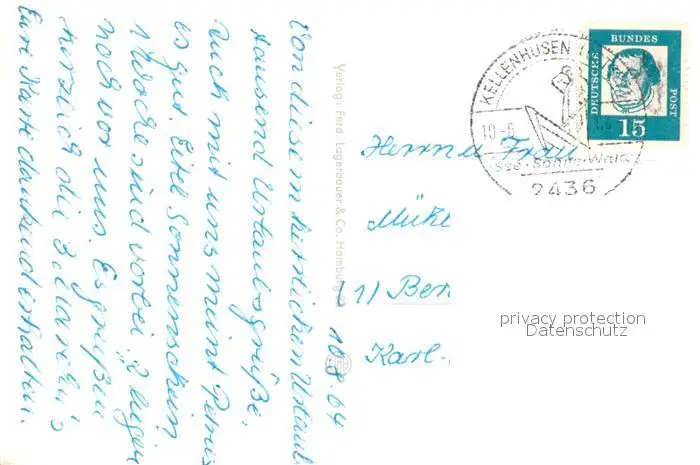 10.8.64
Von diesem herrlichen Urlaub
tausend Urlaubsgrüße.
Auch mit uns meint Petrus
es gut. Eitel Sonnenschein
1 Woche sind vorbei, 2 liegen
noch vor uns. Es grüßen
herzlich die 3
Eure Karte dankend erhalten.
Verlag: Ferd. Lagerbauer & Co. Hamburg
KELLENHUSEN
10-8
See-Sonne-Wald
2436
DEUTSCHE
BUNDES
POST
15
Herrn u Frau
(1) Ber
Karl-
privacy protection
Datenschutz